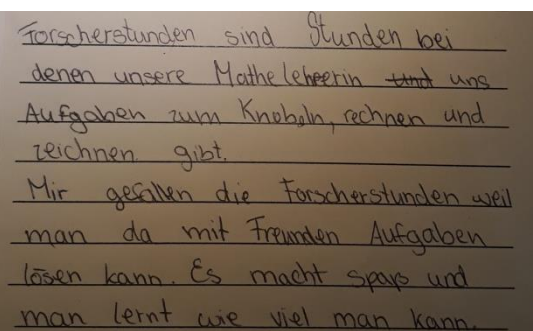 Forscherstunden sind Stunden bei
denen unsere Mathelehrerin ~~und~~ uns
Aufgaben zum Knobeln, rechnen und
zeichnen gibt.
Mir gefallen die Forscherstunden weil
man da mit Freunden Aufgaben
lösen kann. Es macht spaß und
man lernt wie viel man kann.